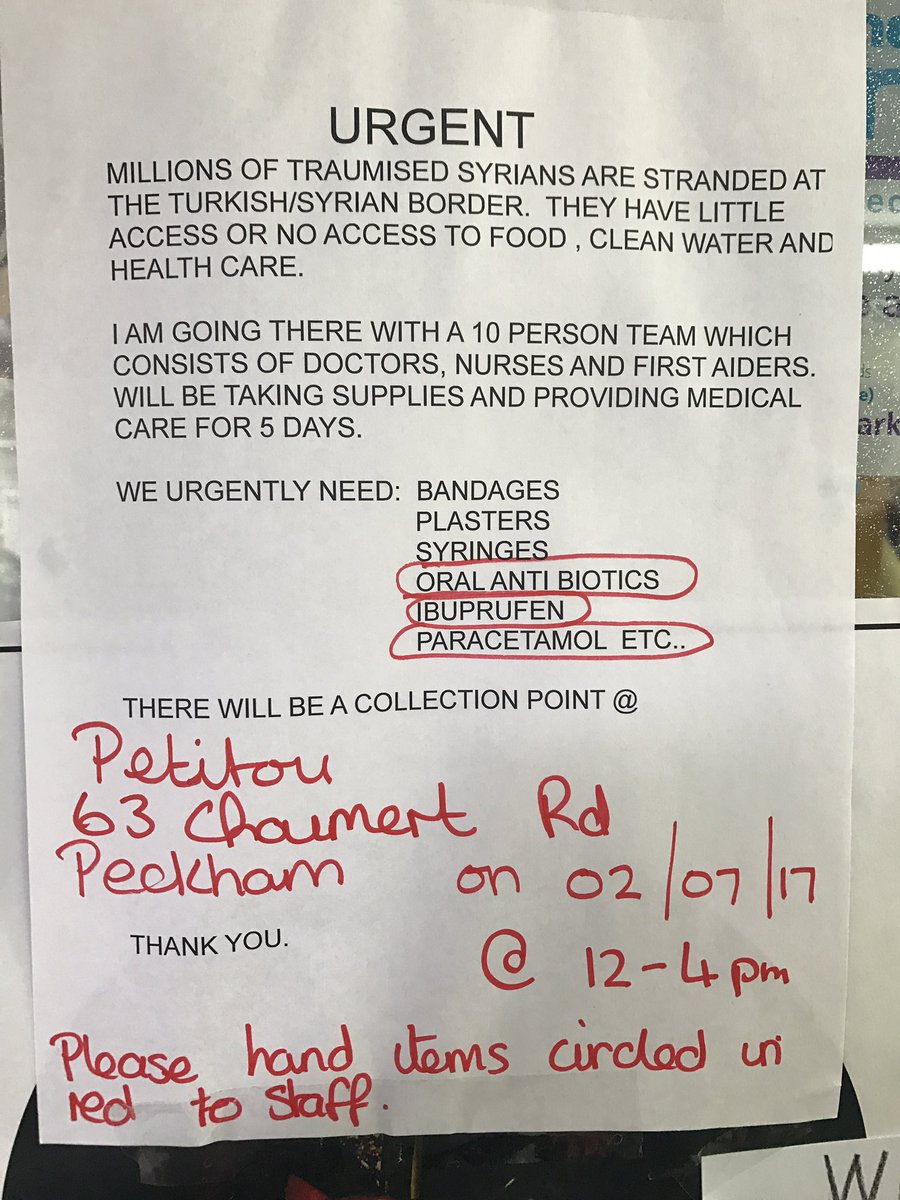 URGENT
MILLIONS OF TRAUMISED SYRIANS ARE STRANDED AT
THE TURKISH/SYRIAN BORDER. THEY HAVE LITTLE
ACCESS OR NO ACCESS TO FOOD , CLEAN WATER AND
HEALTH CARE.
I AM GOING THERE WITH A 10 PERSON TEAM WHICH
CONSISTS OF DOCTORS, NURSES AND FIRST AIDERS.
WILL BE TAKING SUPPLIES AND PROVIDING MEDICAL
CARE FOR 5 DAYS.
WE URGENTLY NEED: BANDAGES
PLASTERS
SYRINGES
ORAL ANTI BIOTICS
IBUPRUFEN
PARACETAMOL ETC..
THERE WILL BE A COLLECTION POINT @
Petitou
63 Choumert Rd
Peckham on 02/07/17
THANK YOU.
@ 12-4pm
Please hand items circled in
red to staff.